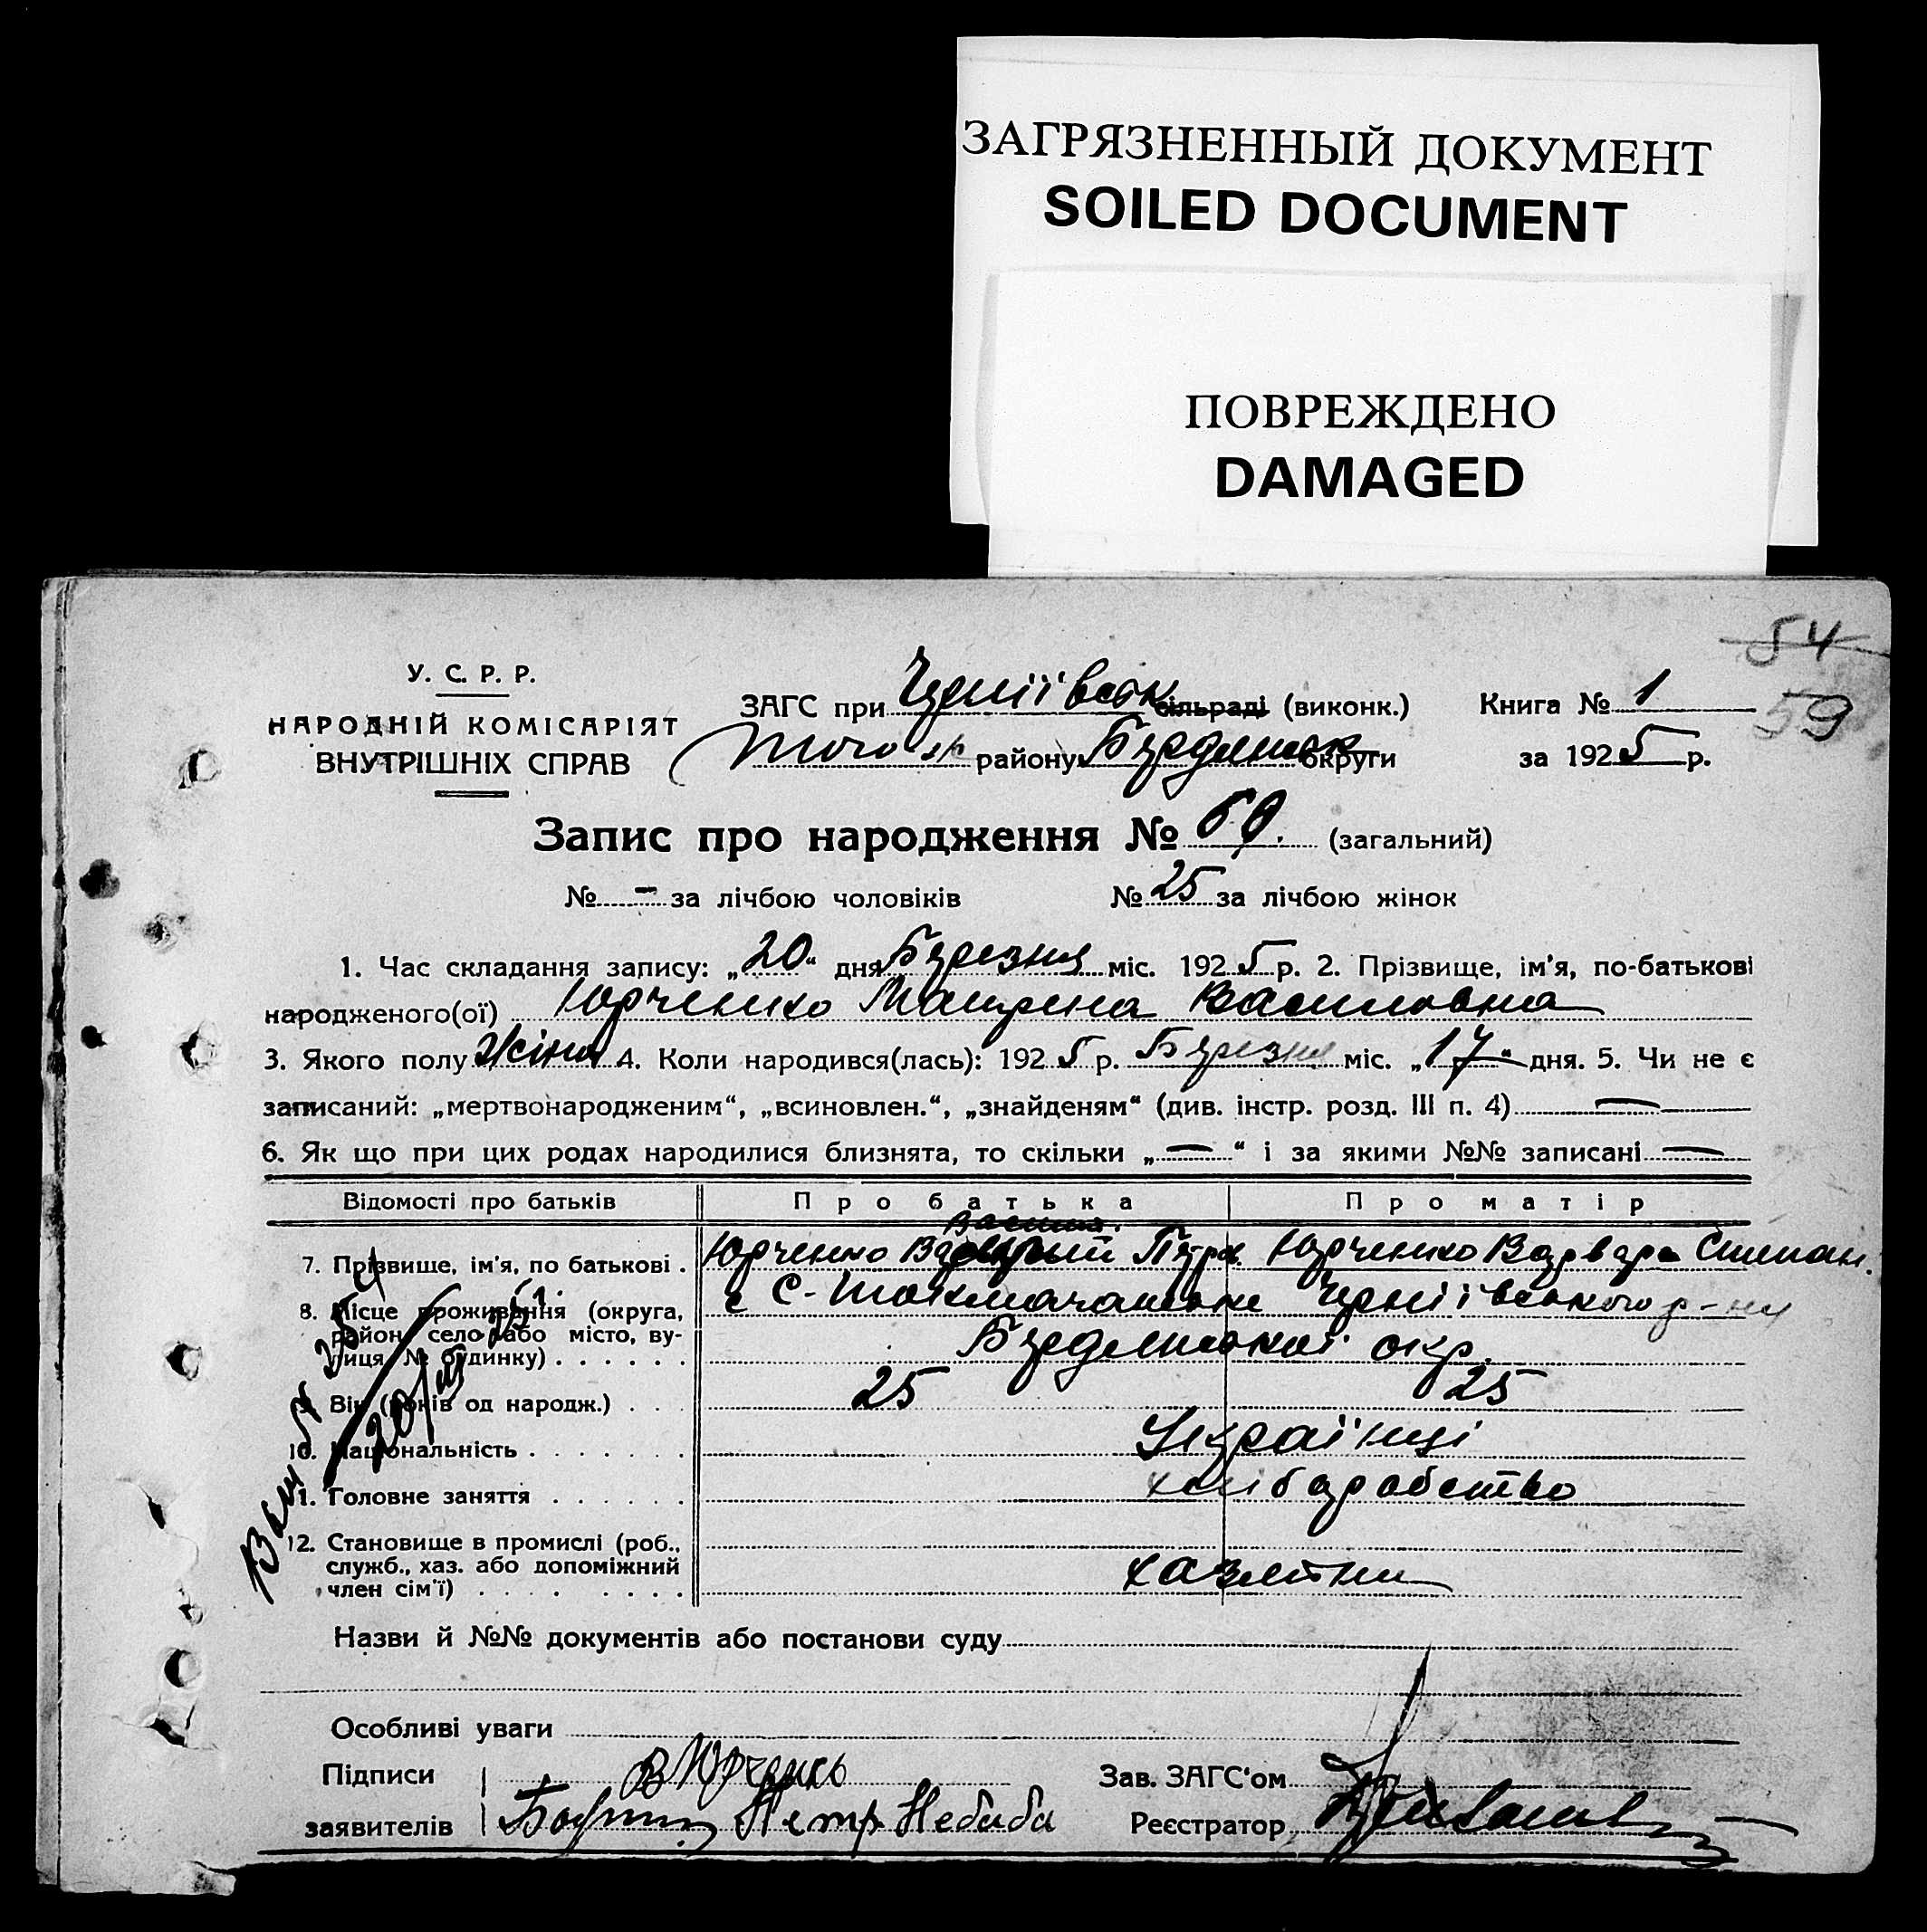 ЗАГРЯЗНЕННЫЙ ДОКУМЕНТ
SOILED DOCUMENT
ПОВРЕЖДЕНО
DAMAGED
54
59
У. С. Р. Р.
НАРОДНІЙ КОМІСАРІЯТ
ВНУТРІШНІХ СПРАВ
ЗАГС при Черніївськ сільраді (виконк.) Книга № 1
того ж району Бердянськ округи за 1925 р.
Запис про народження № (загальний)
№ - за лічбою чоловіків № 25 за лічбою жінок
1. Час складання запису: „20“ дня Березня міс. 1925 р. 2. Прізвище, ім'я, по-батькові
народженого(ої) Юрченко Мотрена Василовна
3. Якого полу Жіноч 4. Коли народився(лась): 1925 р. Березня міс. „17“ дня. 5. Чи не є
записаний: „мертвонародженим“, „всиновлен.“, „знайденям“ (див. інстр. розд. III п. 4) —
6. Як що при цих родах народилися близнята, то скільки „—“ і за якими №№ записані —
Відомості про батьків Про батька Про матір
Васили.
7. Прізвище, ім'я, по батькові . Юрченко Петров. Юрченко Варвара Степан.
8. Місце проживання (округа, район, село або місто, вулиця, № будинку) . . . . . . с. С-Токмачанське Черніївського р-ну
Бердянської окр.
9. Вік (років од народж.) . . . 25 25
10. Національність . . . . . . . Українці
11. Головне заняття . . . . . . хліборобство
12. Становище в промислі (роб.,
служб., хаз. або допоміжний
член сім'ї) . . . . . . хазяїни
Назви й №№ документів або постанови суду
Особливі уваги
Підписи В Юрченко Зав. ЗАГС'ом
заявителів Петр Небаба Реєстратор